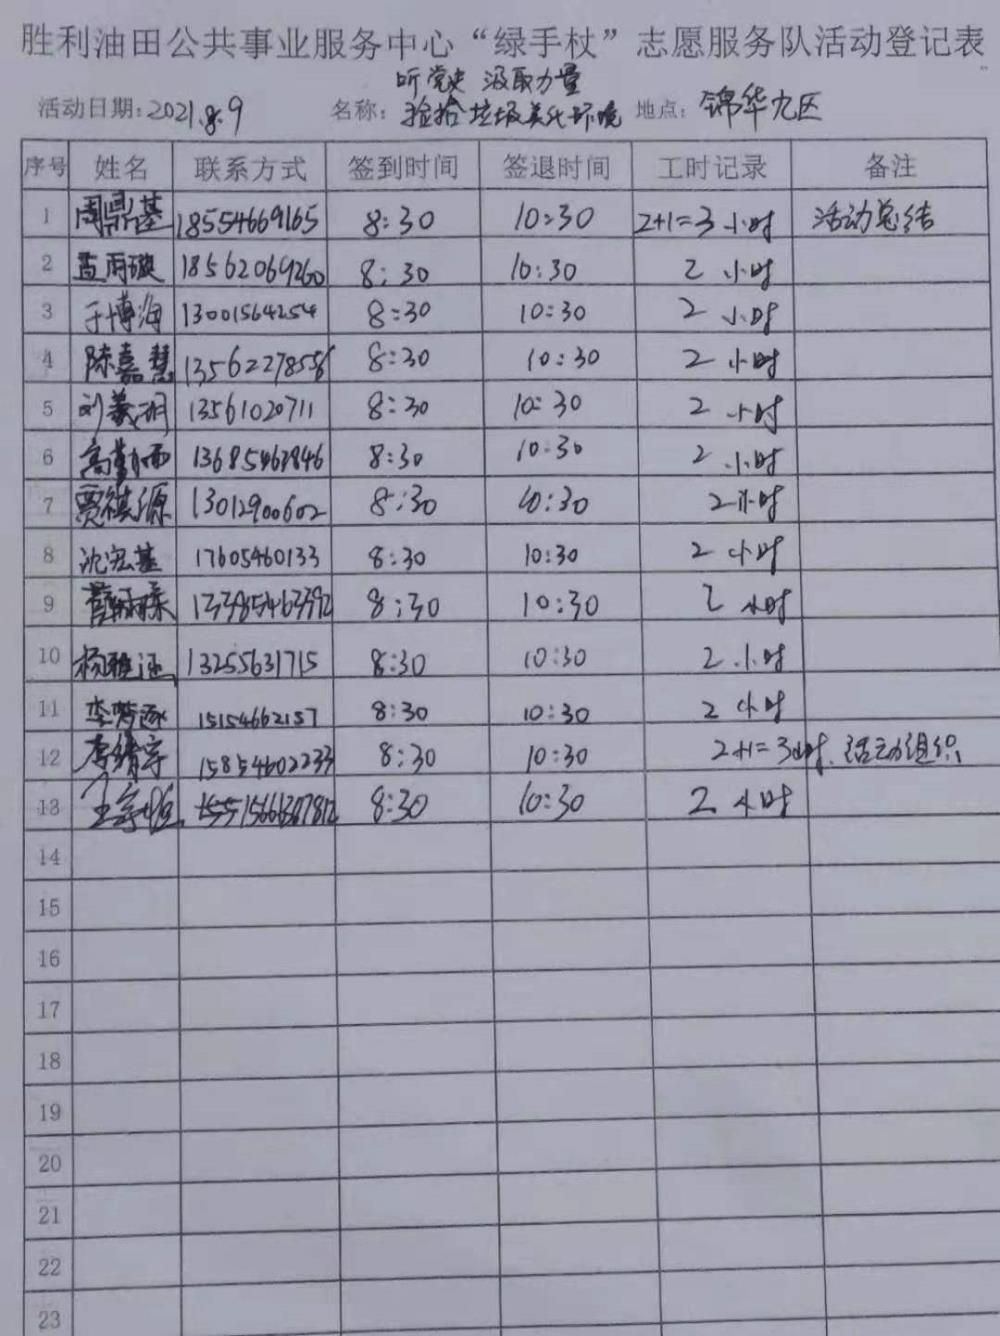 胜利油田公共事业服务中心“绿手杖”志愿服务队活动登记表
听党史 汲取力量
活动日期:2021.8.9 名称:捡拾垃圾美化环境 地点:锦华九区
序号 姓名 联系方式 签到时间 签退时间 工时记录 备注
1 周鼎基 18554669165 8:30 10:30 2+1=3小时 活动总结
2 18562069260 8:30 10:30 2小时
3 于博海 13001564254 8:30 10:30 2小时
4 陈嘉慧 13562278558 8:30 10:30 2小时
5 刘羲玥 13561020711 8:30 10:30 2小时
6 高勤雨 13685462846 8:30 10:30 2小时
7 贾祺源 13012900602 8:30 10:30 2小时
8 沈宏基 17605460133 8:30 10:30 2小时
9 8:30 10:30 2小时
10 杨雅涵 13255631715 8:30 10:30 2小时
11 李梦逐 15154662157 8:30 10:30 2小时
12 李靖宇 15854602233 8:30 10:30 2+1=3小时. 活动组织
13 8:30 10:30 2小时
14
15
16
17
18
19
20
21
22
23